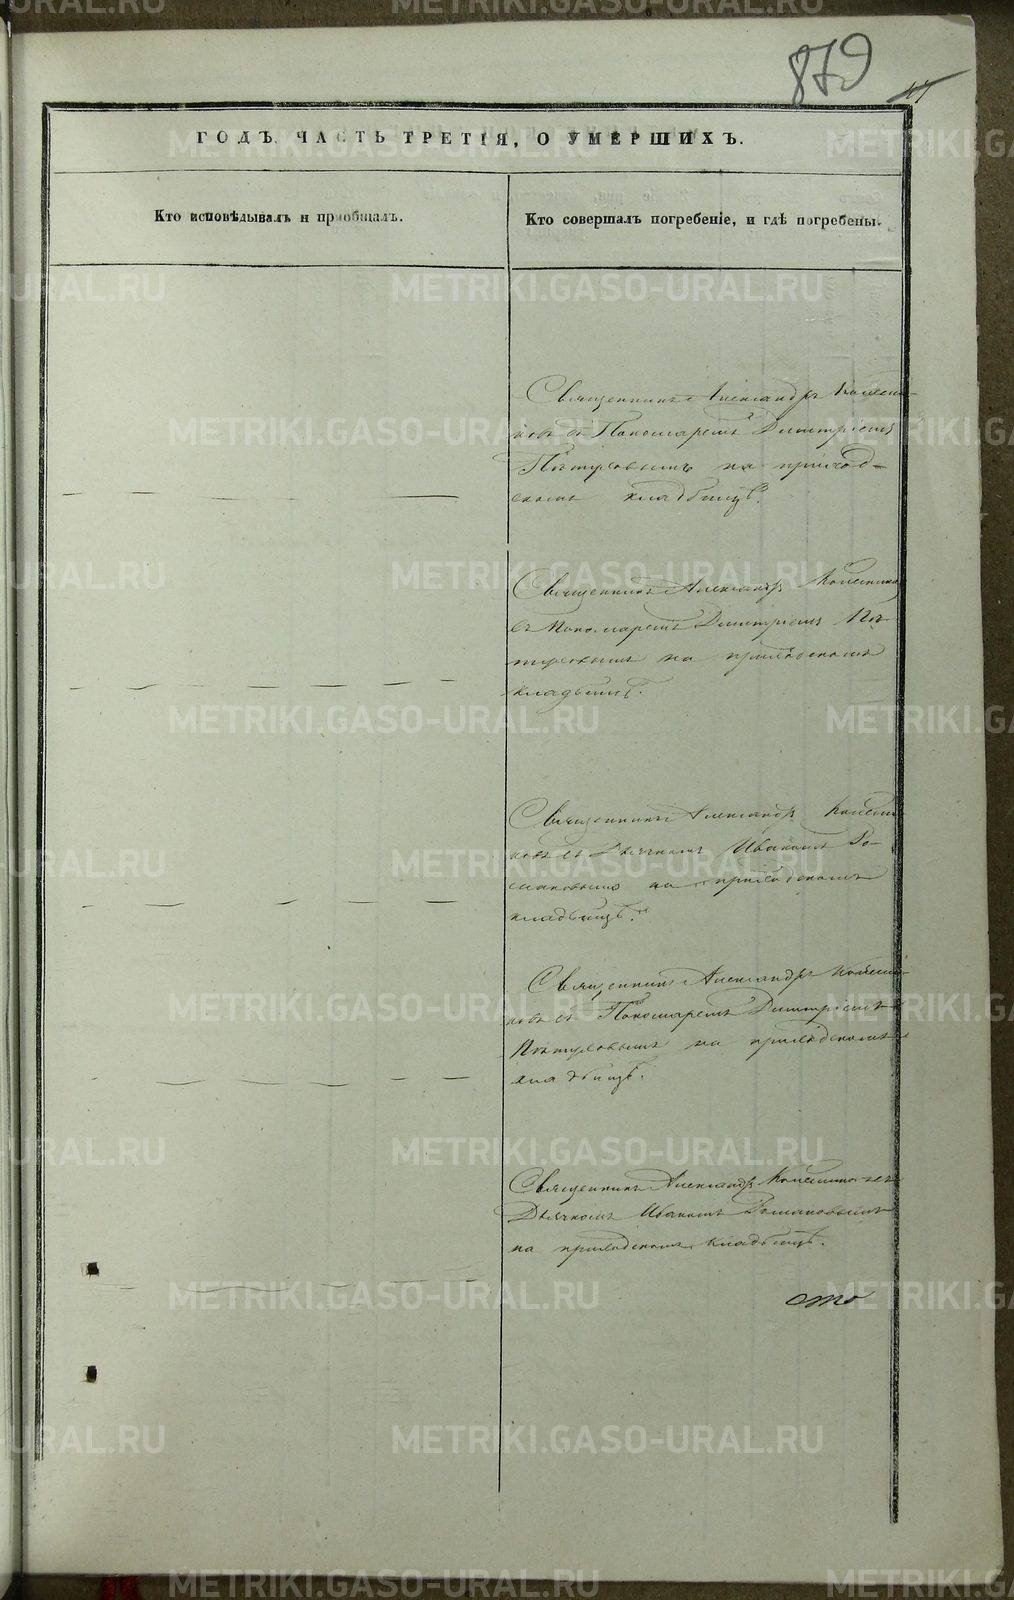 879
ГОДЪ, ЧАСТЬ ТРЕТІЯ, О УМЕРШИХЪ.
Кто исповѣдывалъ и пріобщалъ.
Кто совершалъ погребеніе, и гдѣ погребены.
Священникъ Александръ
съ Пономаремъ Димитріемъ
Пѣтуховымъ на приход-
скомъ кладбищѣ.
Священникъ Александръ
съ Пономаремъ Димитріемъ Пѣ-
туховымъ на приходскомъ
кладбищѣ.
Священникъ Александръ
съ Дьячкомъ Иваномъ Ро-
мановымъ на приходскомъ
кладбищѣ.
Священникъ Александръ
съ Пономаремъ Димитріемъ
Пѣтуховымъ на приходскомъ
кладбищѣ.
Священникъ Александръ
Дьячкомъ Иваномъ Романовымъ
на приходскомъ кладбищѣ.
METRIKI.GASO-URAL.RU